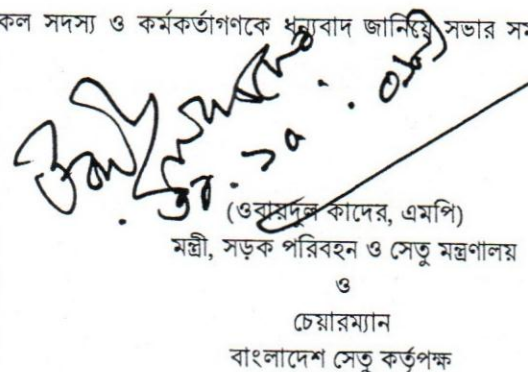 কল সদস্য ও কর্মকর্তাগণকে ধন্যবাদ জানিয়ে সভার সম
(ওবায়দুল কাদের, এমপি)
মন্ত্রী, সড়ক পরিবহন ও সেতু মন্ত্রণালয়
ও
চেয়ারম্যান
বাংলাদেশ সেতু কর্তৃপক্ষ